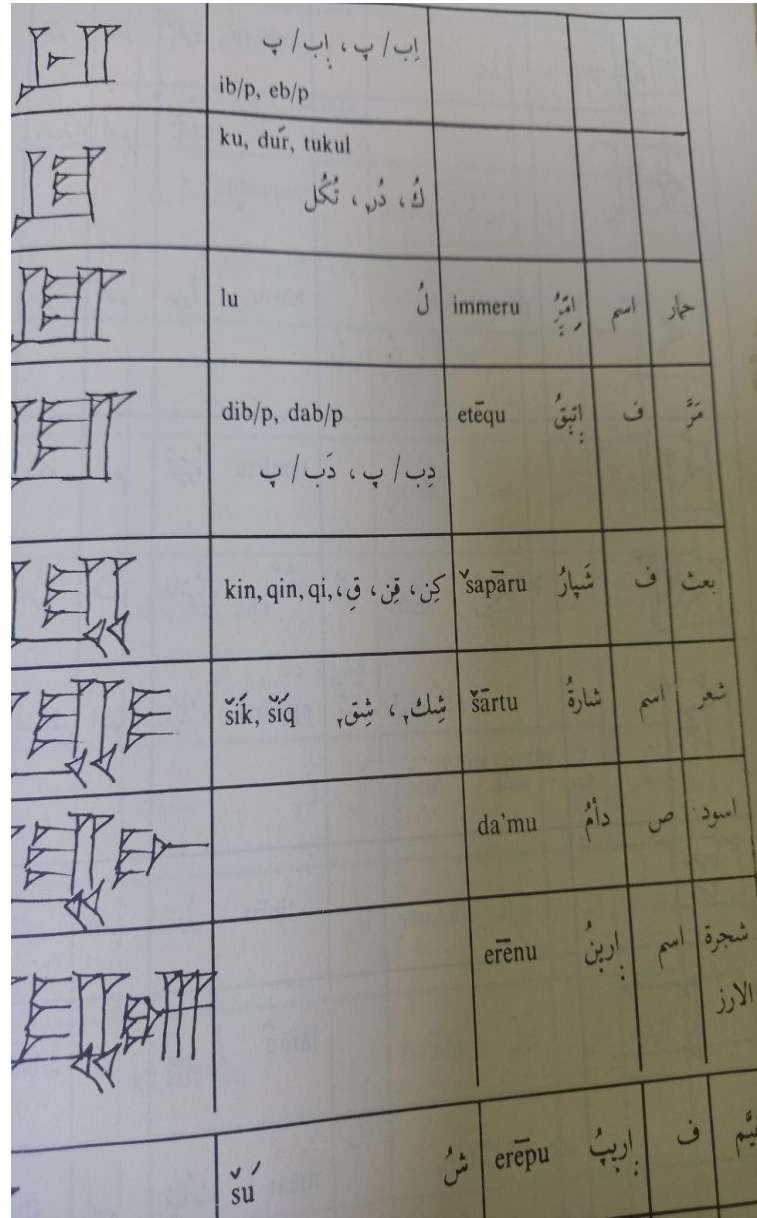 اِب/ پ ، اِٖب/ پ
ib/p, eb/p
ku, duŕ, tukul
كُ ، دُر٢ ، تُكُل
lu لُ immeru اِمِّرُ اسم حمار
dib/p, dab/p etēqu اِتٖيقُ ف مَرَّ
دِب/ پ ، دَب/ پ
kin, qin, qi, كِن ، قِن ، قِ ، šapāru شَپارُ ف بعث
šíḱ, šíq شِك٢ ، شِق٢ šārtu شارةُ اسم شعر
da'mu دأمُ ص اسود
erēnu اِرٖينُ اسم شجرة
الارز
šú شُ erēpu اِرٖيپُ ف